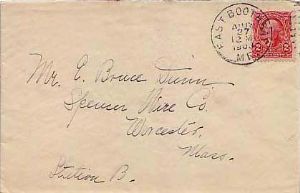 EAST BOOTH
AUG
27
12 M
190
ME.
2 2
Mr. E. Bruce Dunn
Spencer Wire Co.
Worcester,
Mass.
Station B.